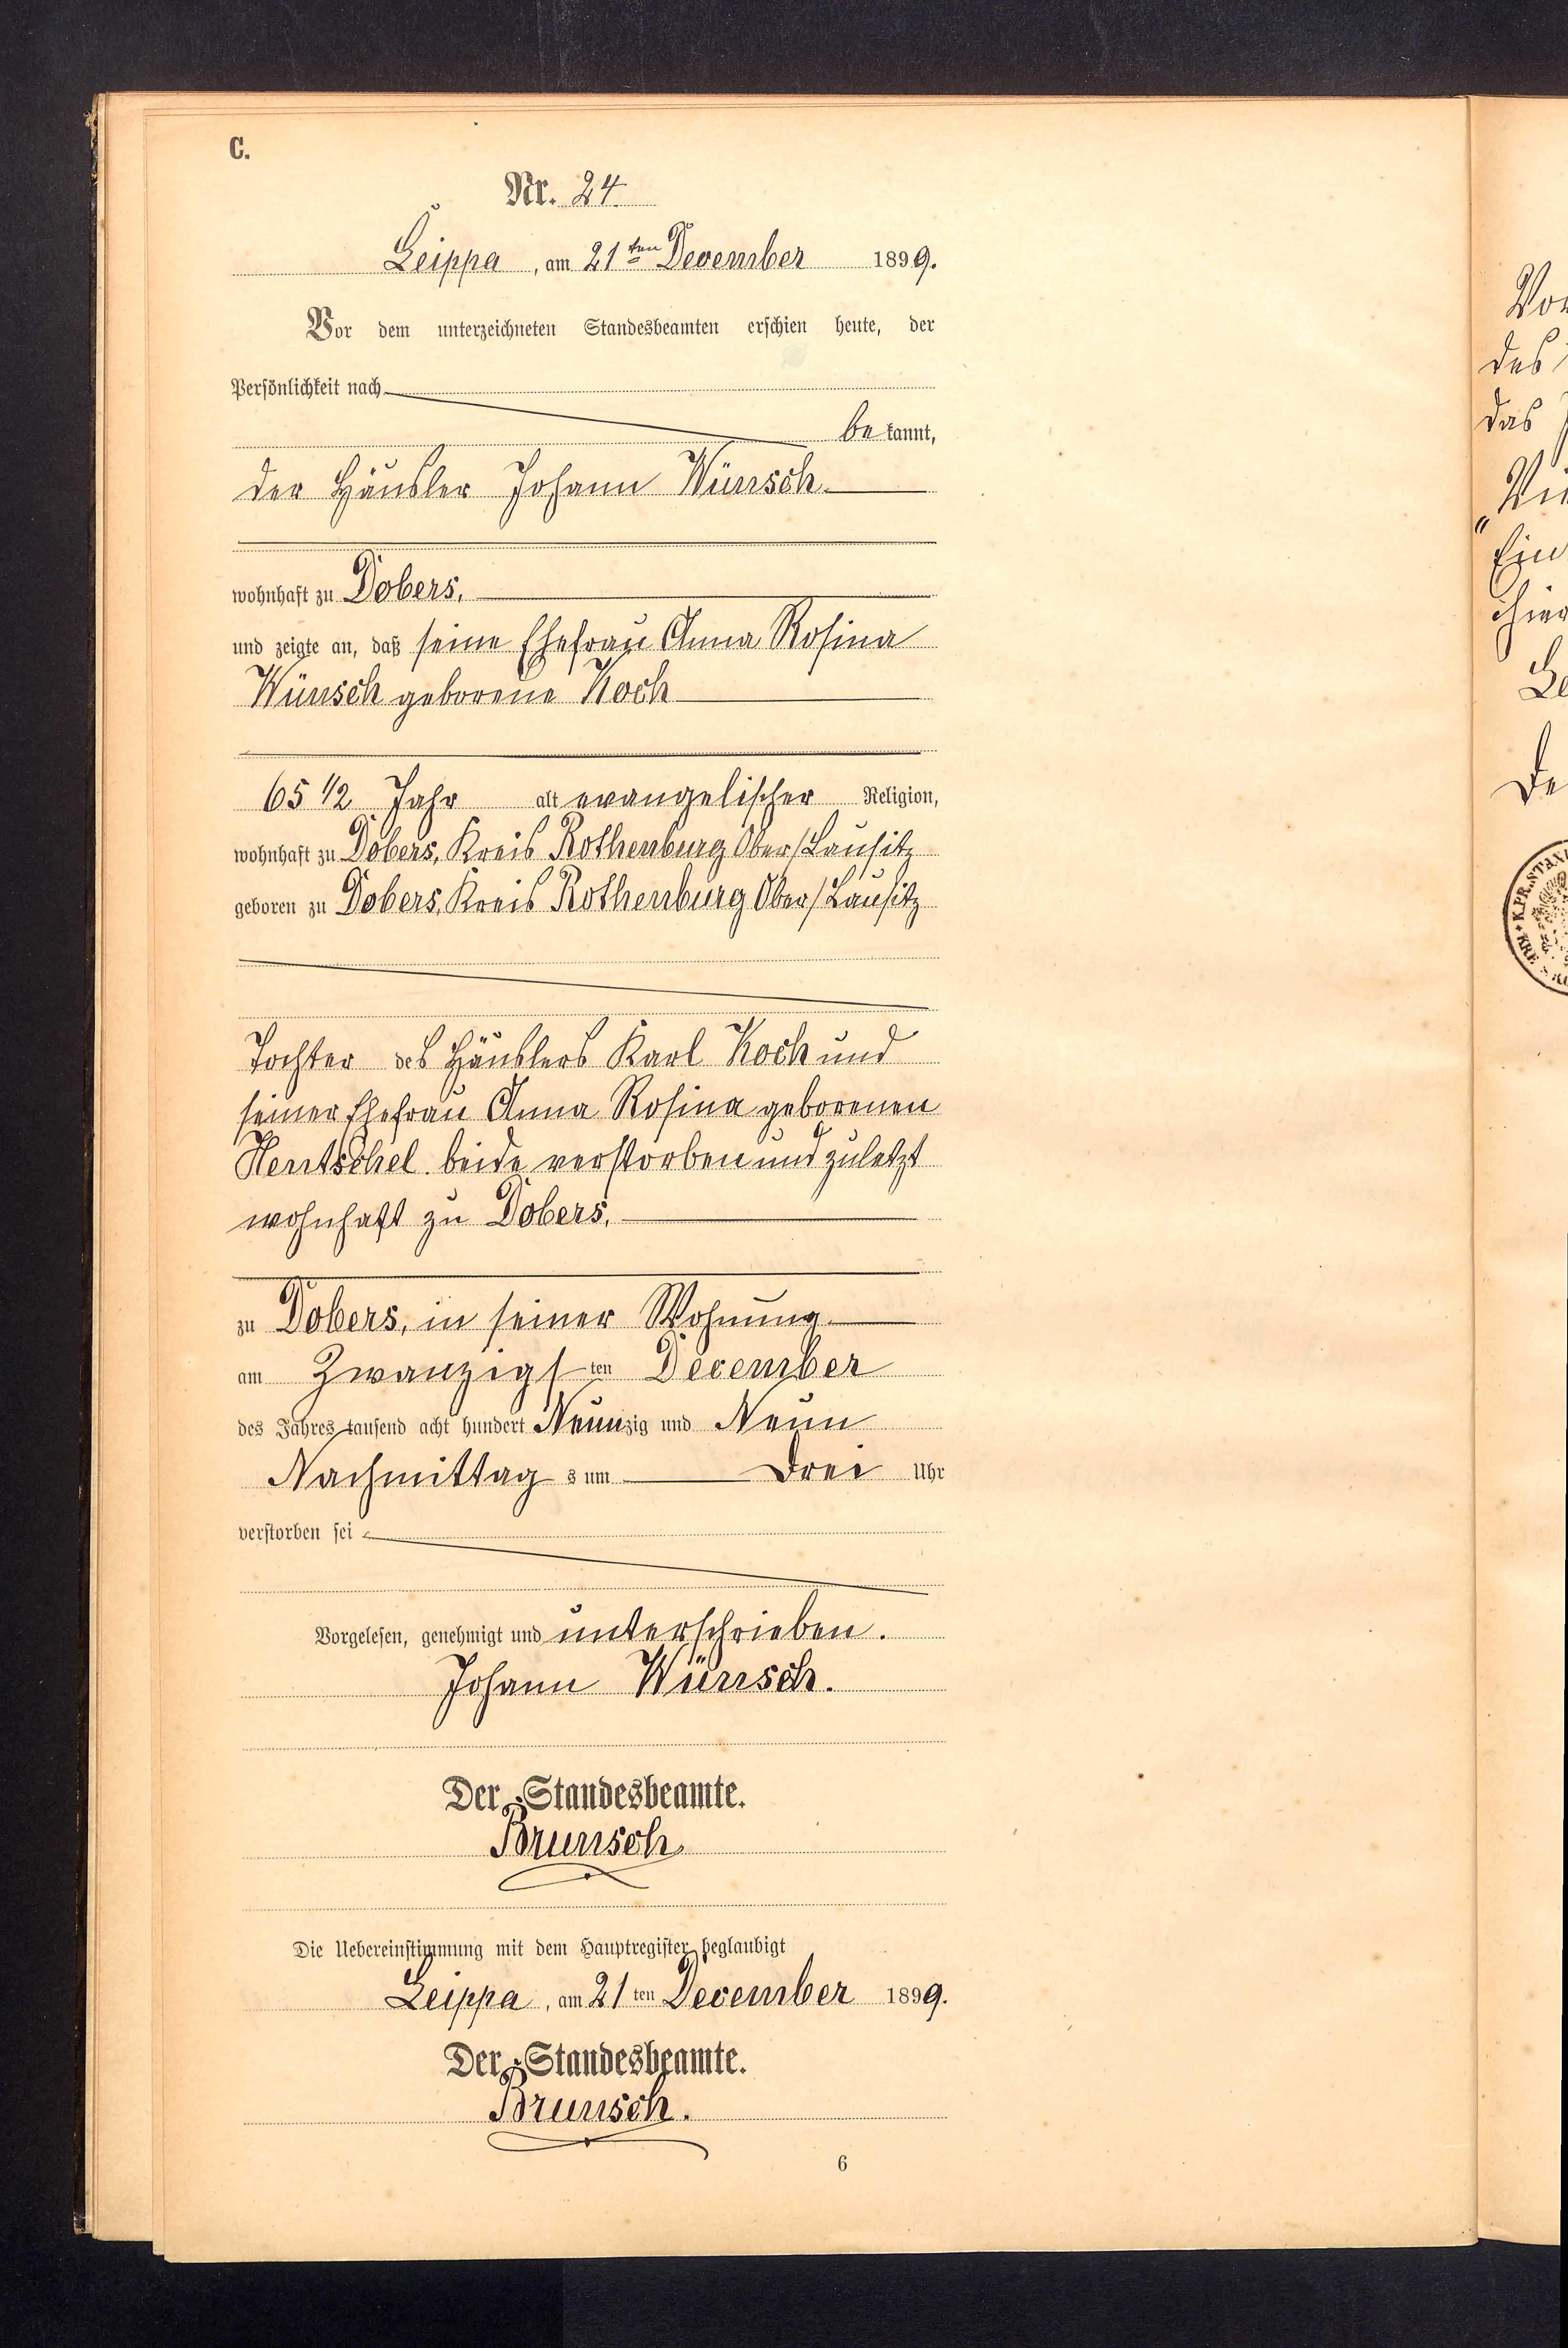 C.
Nr. 24.
Leippa, am 21ten December 1899.
Vor dem unterzeichneten Standesbeamten erschien heute, der
Persönlichkeit nach
bekannt,
der Häusler Johann Wünsch.
wohnhaft zu Dobers,
und zeigte an, daß seine Ehefrau Anna Rosina
Wünsch geborene Koch
65 1/2 Jahr alt evangelischer Religion,
wohnhaft zu Dobers, Kreis Rothenburg Ober/Lausitz
geboren zu Dobers, Kreis Rothenburg Ober/Lausitz
Tochter des Häuslers Karl Koch und
seiner Ehefrau Anna Rosina geborenen
Hentschel beide verstorben und zuletzt
wohnhaft zu Dobers,
zu Dobers, in seiner Wohnung
am Zwanzigsten December
des Jahres tausend acht hundert Neunzig und Neun
Nachmittags um Drei Uhr
verstorben sei
Vorgelesen, genehmigt und unterschrieben.
Johann Wünsch.
Der Standesbeamte.
Brunsch
Die Uebereinstimmung mit dem Hauptregister beglaubigt
Leippa, am 21ten December 1899.
Der Standesbeamte.
Brunsch.
6
des
das